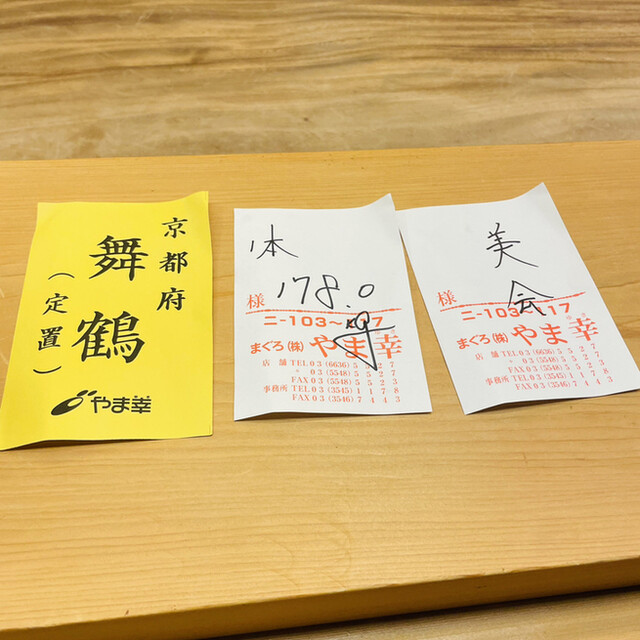 京都府
舞鶴
(定置)
やま幸
本
178.0
様
ニ-103~117
まぐろ(株)やま幸
店舗 TEL 03 (6636) 5527
〃 03 (5548) 5527
FAX 03 (5548) 5523
事務所 TEL 03 (3545) 1178
FAX 03 (3546) 7443
美
会
様
ニ-103~117
まぐろ(株)やま幸
店舗 TEL 03 (6636) 5527
〃 03 (5548) 5527
FAX 03 (5548) 5523
事務所 TEL 03 (3545) 1178
FAX 03 (3546) 7443